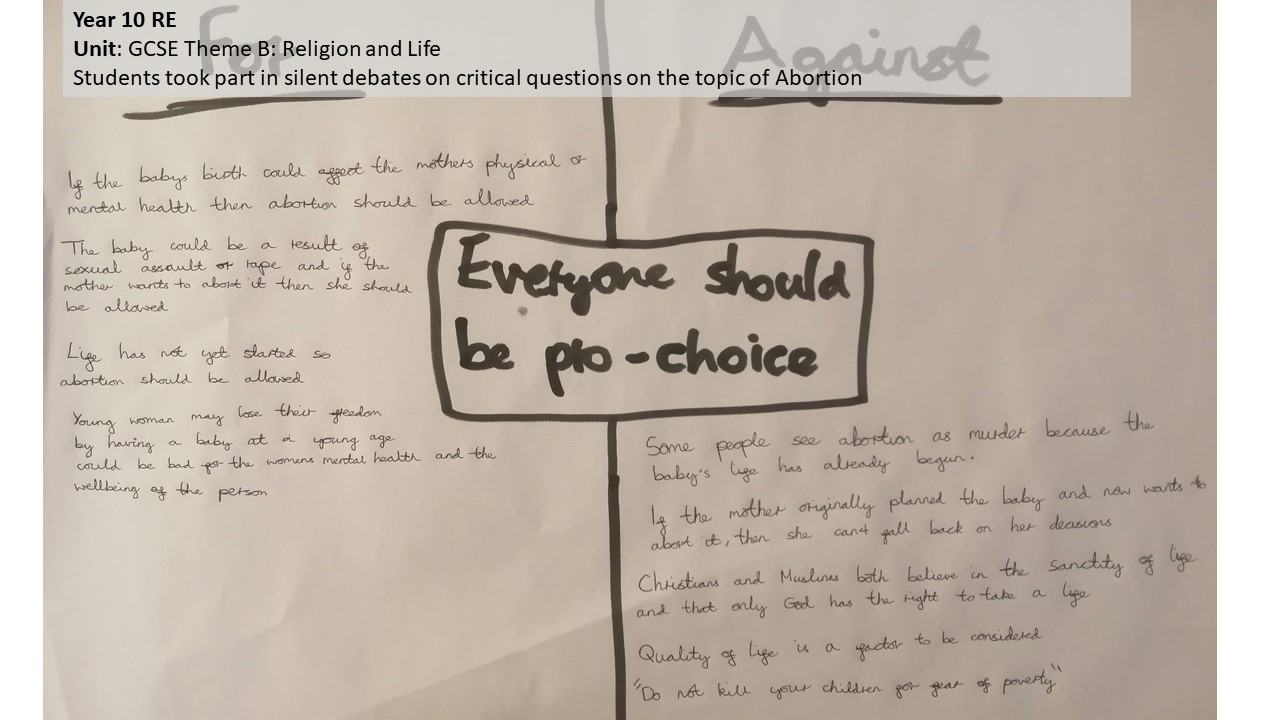 Year 10 RE
Unit: GCSE Theme B: Religion and Life
Students took part in silent debates on critical questions on the topic of Abortion
For
Against
If the babys birth could affect the mothers physical or
mental health then abortion should be allowed
The baby could be a result of
sexual assault or rape and if the
mother wants to abort it then she should
be allowed
Life has not yet started so
abortion should be allowed
Young woman may lose their freedom
by having a baby at a young age
could be bad for the womens mental health and the
wellbeing of the person
Everyone should
be pro-choice
Some people see abortion as murder because the
baby's life has already begun.
If the mother originally planned the baby and now wants to
abort it, then she can't fall back on her decisions
Christians and Muslims both believe in the sanctity of life
and that only God has the right to take a life
Quality of life is a factor to be considered
"Do not kill your children for fear of poverty"